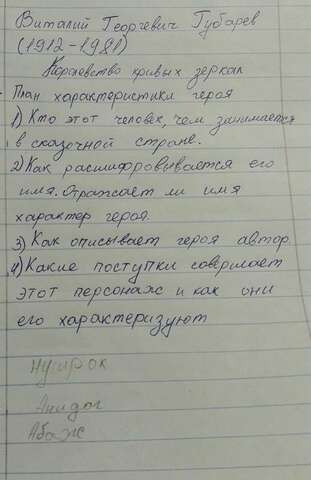 Виталий Георгевич Губарев
(1912-1981)
Королевство кривых зеркал
План характеристики героя
1) Кто этот человек, чем занимается
в сказочной стране.
2) Как расшифровывается его
имя. Отражает ли имя
характер героя.
3) Как описывает героя автор.
4) Какие поступки совершает
этот персонаж и как они
его характеризуют
Нушрок
Анидаг
Абаж